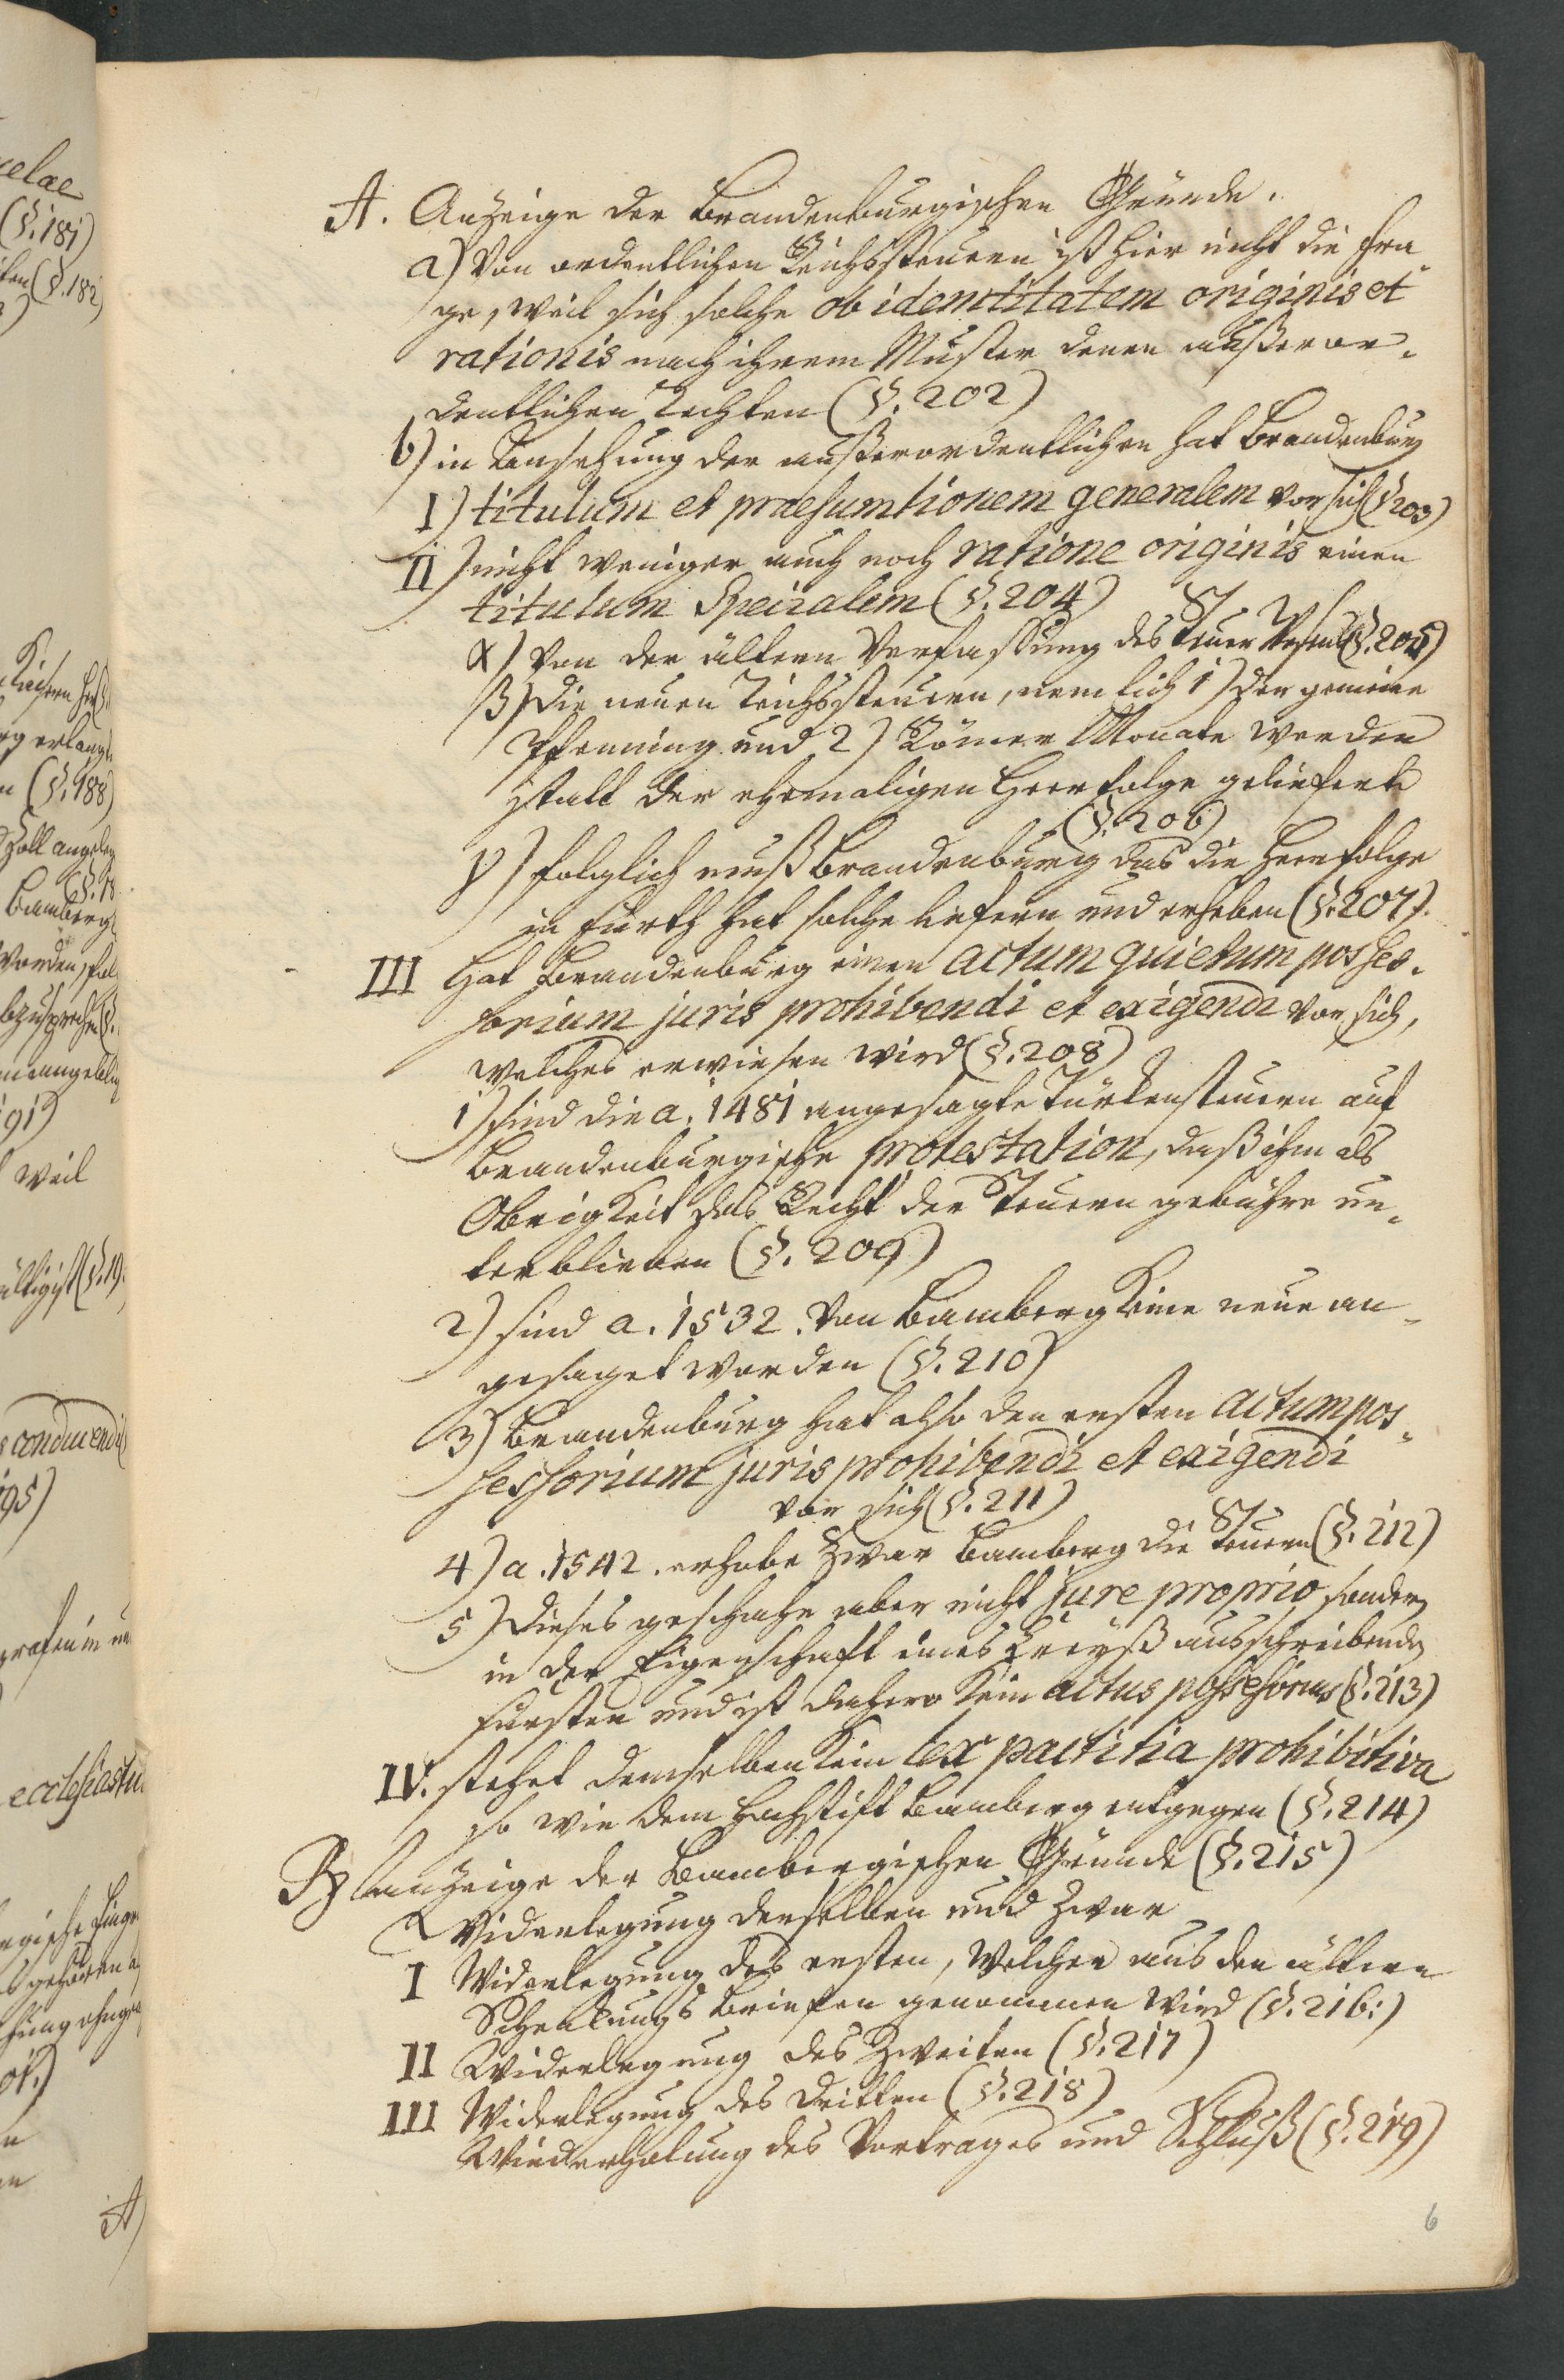 A. Anzeige der Brandenburgischen Gründe.
a) Von ordentlichen Reichssteuern ist hier nicht die Fra-
ge, weil sich solche ob idemtitatem originis et
rationis nach ihrem Muster denen außeror-
dentlichen richten (§. 202)
b) in Ansehung der außerordentlichen hat Brandenburg
I) titulum et praesumtionem generalem vor sich (§ 203)
II) nicht weniger auch noch ratione originis einen
titulum Specialem (§. 204)
α) Von der ältern Verfassung des Steuer Wesens (§. 205)
β) Die neuen Reichssteuern, nemlich 1) der gemeine
Pfenning und 2) Römer Monate werden
statt der ehemaligen Heerfolge geliefert
(§. 206)
γ) folglich muß Brandenburg das die Heerfolge
in Fürth hat solche liefern und erheben (§. 207).
III Hat Brandenburg einen actum quietum posses-
sorium juris prohibendi et exigendi vor sich,
welches erwiesen wird (§. 208)
1) sind die a. 1481 angesagte Türkensteuern auf
Brandenburgische protestation, daß ihm als
Obrigkeit das Recht der Steuern gebühre un-
terblieben (§. 209)
2) sind a. 1532. von Bamberg keine neue an-
gesaget worden (§. 210)
3) Brandenburg hat also den ersten actum pos-
sessorium juris prohibendi et exigendi
vor sich (§. 211)
4) a. 1542. erhobe zwar Bamberg die Steuern (§. 212)
5) dieses geschahe aber nicht jure proprio sondern
in der Eigenschaft eines Creyß ausschreibenden
Fürsten und ist dahero kein actus possessorius (§. 213)
IV. stehet demselben kein lex pactitia prohibitiva
so wie dem Hochstift Bamberg entgegen (§. 214)
B Anzeige der Bambergischen Gründe (§. 215)
Widerlegung derselben und zwar
I Widerlegung des ersten, welcher aus den ältern
Schenkungs Briefen genommen wird (§. 216:)
II Widerlegung des Zweiten (§. 217)
III Widerlegung des dritten (§. 218)
Wiederholung des Vortrages und Schluß (§. 219)
6